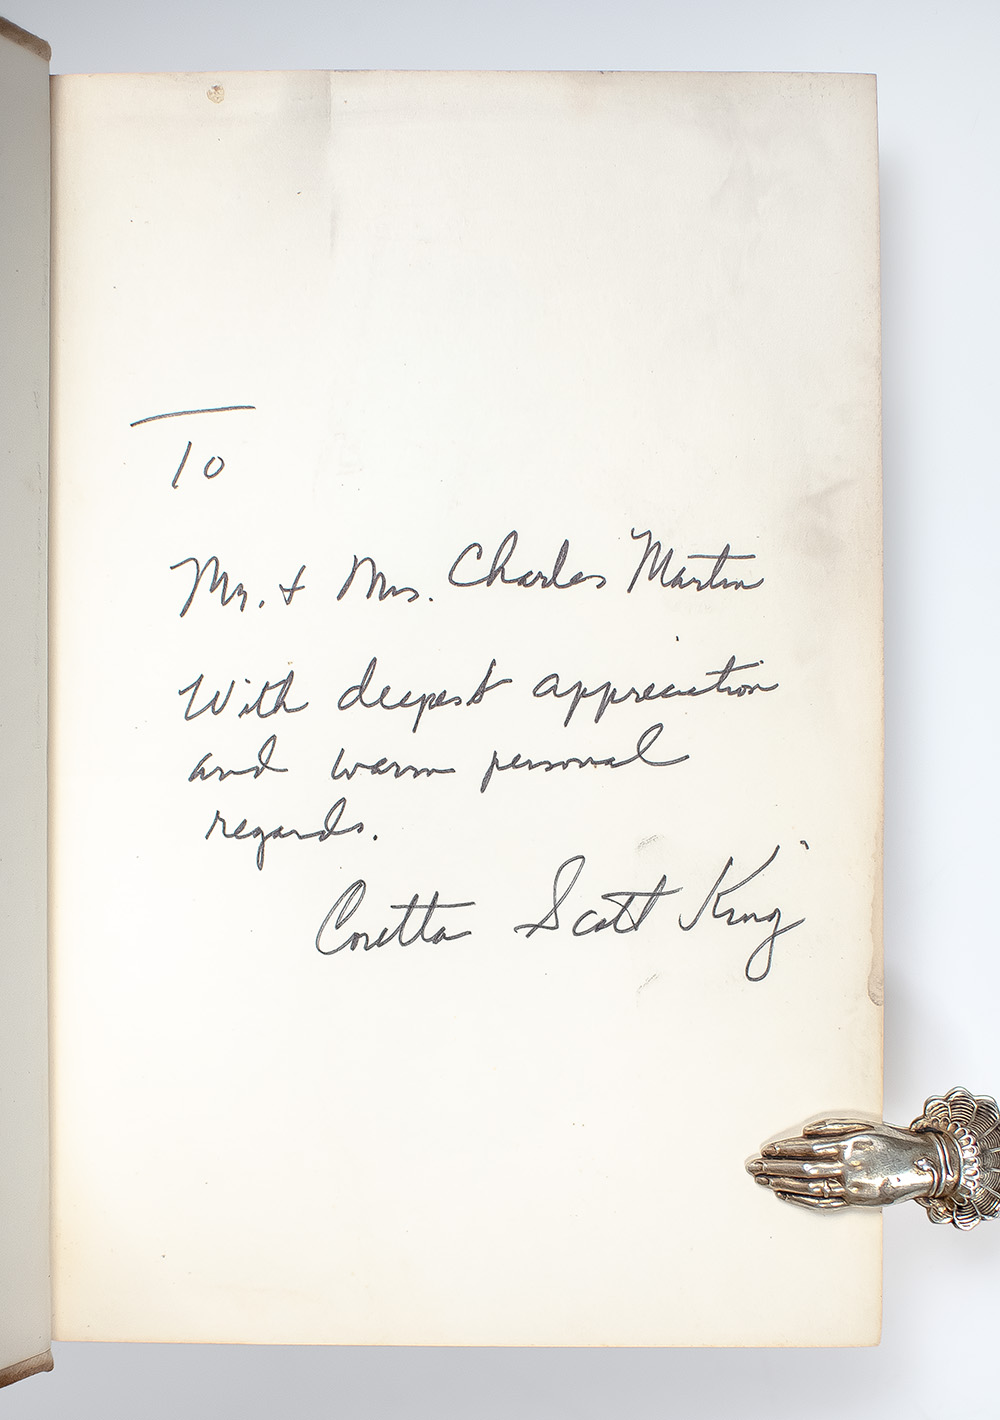 To
Mr. + Mrs. Charles Martin
With deepest appreciation
and warm personal
regards.
Coretta Scott King